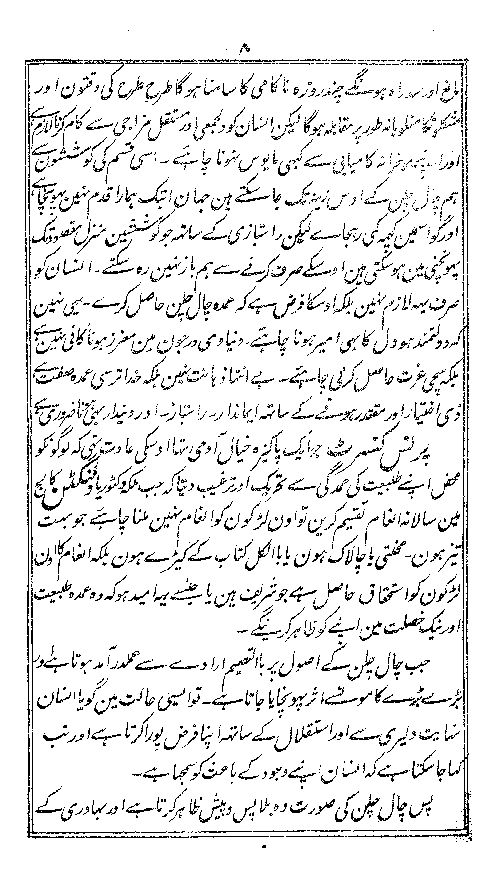 ۸
مانع اور سد راہ ہونگے چند روزہ ناکامی کا سامنا ہوگا طرح طرح کی دقتون اور
مشکلونکا مغلوبانہ طور پر مقابلہ ہوگا لیکن انسان کو دلجمعی اور مستقل مزاجی سے کام کرنا لازم ہے
اور اسے کامیابی سے کبھی مایوس نہونا چاہئے ۔ اسی قسم کی کوششون سے
ہم چال چلن کے اوس زینہ تک جا سکتے ہین جہان اب تک ہمارا قدم نہین پہونچا ہے
اور گو اسمین کچھ کمی رہجائے لیکن راستبازی کے ساتھ جو کوششین منزل مقصود تک
پہونچتی ہین ہوسکتی ہین اوسکے صرف کرنے سے ہم باز نہین رہ سکتے ۔ انسان کو
صرف یہہ لازم نہین بلکہ اوسکا فرض ہے کہ عمدہ چال چلن حاصل کرے ۔ یہی نہین
کہ دولتمند ہو دل کا بھی امیر ہونا چاہئے ۔ دنیاوی درجون مین معزز ہونا کافی نہین ہے
بلکہ سچی عزت حاصل کرنی چاہئے ۔ بے انتہا ذہانت نہین بلکہ خدا ترسی عمدہ صفت ہے
ذی اختیار اور مقتدر ہونے کے ساتھ ایماندار ۔ راستباز ۔ اور دیندار بھی ہونا ضروری ہے
پرنس کنسرٹ جو ایک پاکیزہ خیال آدمی تہا اوسکی عادت تہی کہ لوگونکو
محض اپنے طبیعت کی عمدگی سے تحریک اور ترغیب دیتا کہ جب ملکہ وکٹوریا ولنگٹن کالج
مین سالانہ انعام تقسیم کرین تو اون لڑکون کو انعام نہین ملنا چاہئے جو بہت
تیز ہون ۔ محنتی یا چالاک ہون یا بالکل کتاب کے کیڑے ہون بلکہ انعام کا اون
لڑکون کو استحقاق حاصل ہے جو شریف ہین یا جنسے یہ امید ہو کہ وہ عمدہ طبیعت
اور نیک خصلت مین اپنے کو ظاہر کرینگے ۔
جب چال چلن کے اصول پر بالتعمیم ارادے سے عملدرآمد ہوتا ہے اور
بڑے بڑے کامونسے اثر پہونچایا جاتا ہے ۔ تو ایسی حالت مین گویا انسان
نہایت دلیری سے اور استقلال کے ساتھ اپنا فرض پورا کرتا ہے اور تب
کہا جا سکتا ہے کہ انسان اپنے وجود کے باعث کو سمجھا ہے ۔
پس چال چلن کی صورت وہ بلا پس و پیش ظاہر کرتا ہے اور بہادری کے